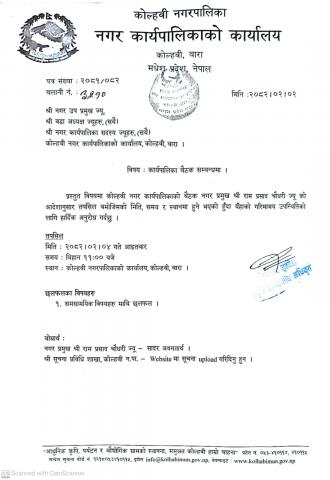 कोल्हवी नगरपालिका
नगर कार्यपालिकाको कार्यालय
कोल्हवी, बारा
मधेश प्रदेश, नेपाल
पत्र संख्या : २०८१/०८२
चलानी नं. :
मिति :२०८२।०२।०२
श्री नगर उप प्रमुख ज्यू,
श्री वडा अध्यक्ष ज्यूहरु,(सर्वै)
श्री नगर कार्यपालिका सदस्य ज्यूहरु,(सर्वै)
कोल्हवी नगरपालिकाको कार्यालय, कोल्हवी, बारा ।
विषय : कार्यपालिका बैठक सम्बन्धमा ।
प्रस्तुत विषयमा कोल्हवी नगर कार्यपालिकाको बैठक नगर प्रमुख श्री राम प्रसाद चौधरी ज्यू को
आदेशानुसार तपसिल बमोजिमको मिति, समय र स्थानमा हुने भएको हुँदा यँहाको गरिमामय उपस्थितिको
लागि हार्दिक अनुरोध गर्दछु ।
तपसिल
मिति : २०८२।०२।०४ गते आइतबार
समय : बिहान ११:०० बजे
स्थान : कोल्हवी नगरपालिकाको कार्यालय, कोल्हवी, बारा ।
छलफलका बिषयहरु
१. समसामयिक बिषयहरु माथि छलफल ।
बोधार्थ :
नगर प्रमुख श्री राम प्रसाद चौधरी ज्यू – सादर अवगतार्थ ।
श्री सूचना प्रविधि शाखा, कोल्हवी न.पा. – Website मा सूचना upload गरिदिनु हुन ।
"आधुनिक कृषि, पर्यटन र औद्योगिक ग्रामको स्थापना, समुन्नत कोल्हवी हाम्रो चाहना"
इमेल :info@kolhabimun.gov.np, वेबसाइट : www.kolhabimun.gov.np
Scanned with CamScanner